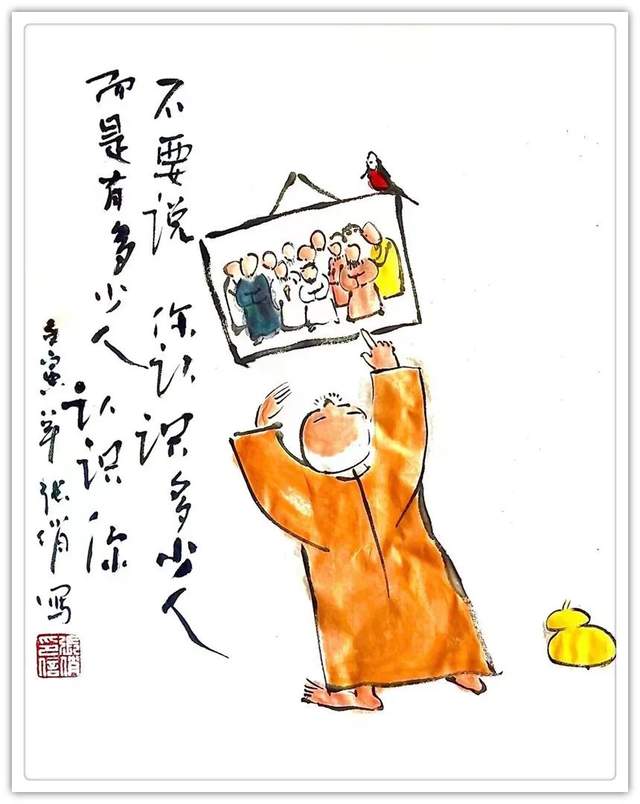 不要说你认识多少人
而是有多少人认识你
壬寅年张俏写